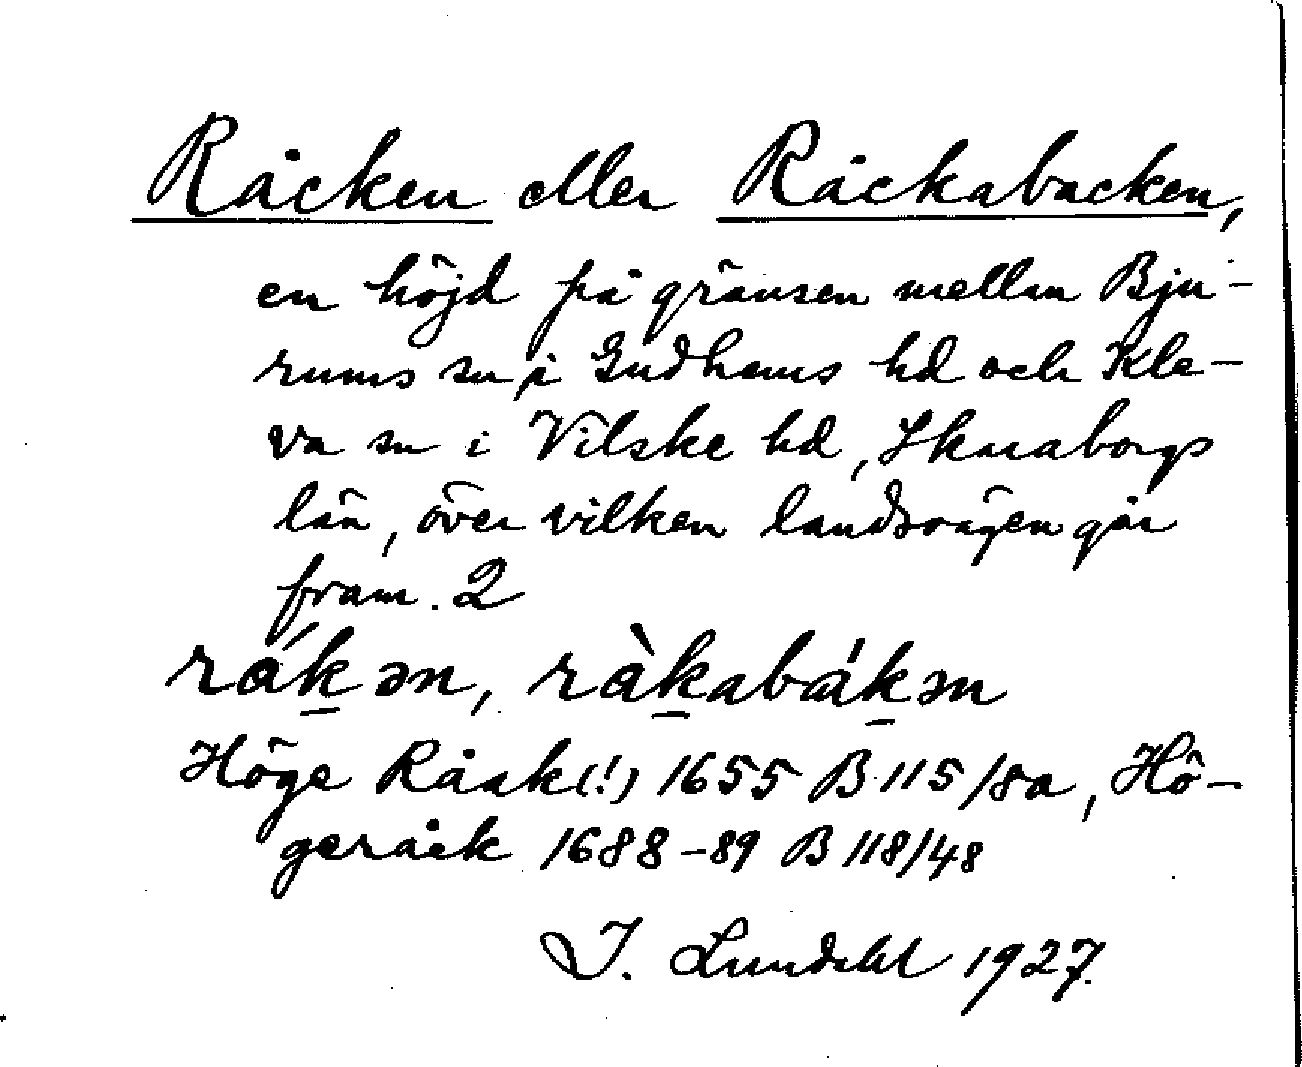 Råcken eller Råckabacken,
en höjd på gränsen mellan Bju-
rums sn, i Gudhems hd och Kle-
va sn i Vilske hd, Skaraborgs
län, över vilken landsvägen går
fram. 2
rá̊kən, rå̀kabákən
Höge Råak(!) 1655 B 115/8a, Hö-
geråck 1688-89 B 118/48
I. Lundahl 1927.